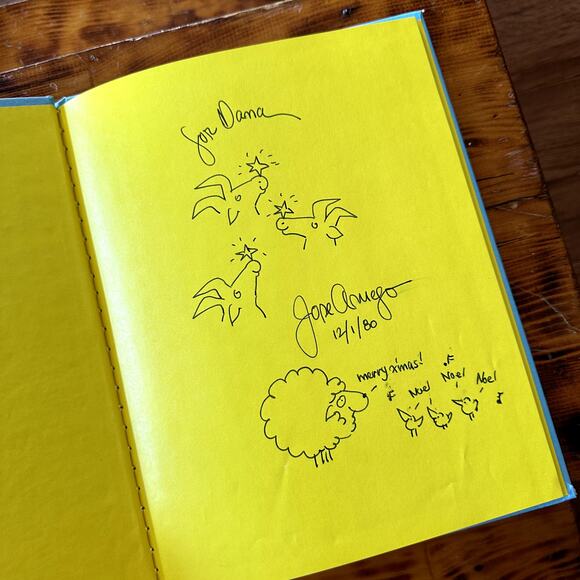 for Dana
Jose Aruego
12/1/80
merry x'mas!
Noel Noel Noel